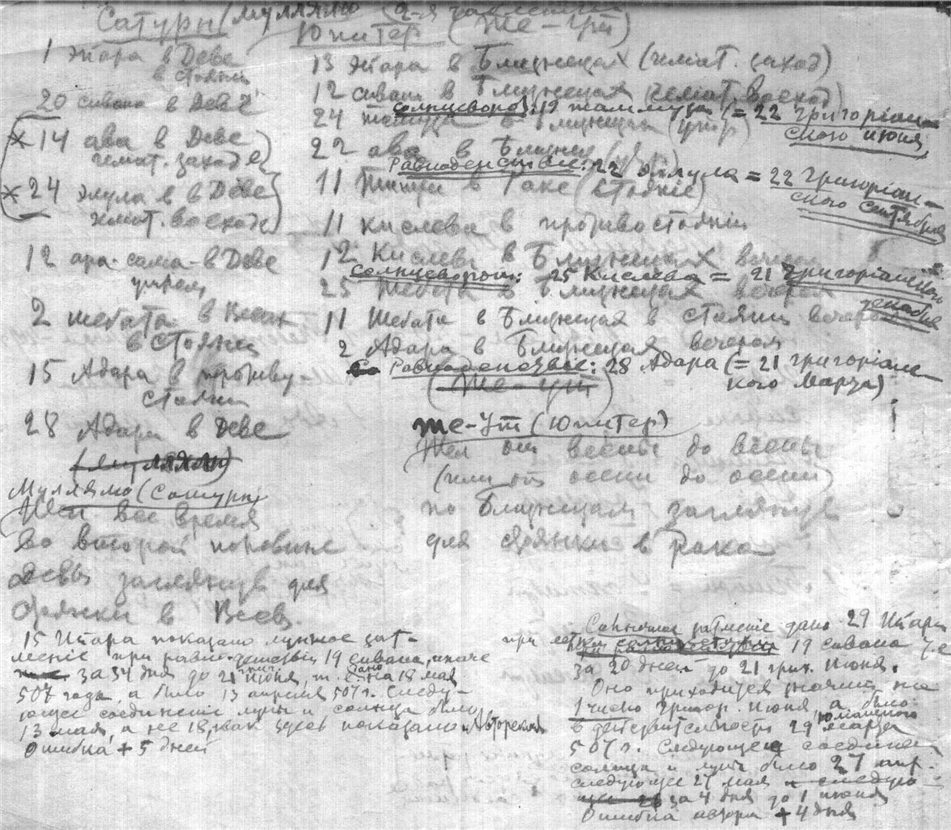 Сатурн/Муллялю (2-я таблетка)
1 Ияра в Деве
в стоянии
20 сивана в Деве
* 14 ава в Деве
гелиат. заход
* 24 элула в Деве
гелиат. восход
12 ара-сама в Деве
утром
2 шебата в Весах
в стоянии
15 Адара в противу
стоянии
28 Адара в Деве
Муллялю (Сатурн)
Шел все время
во второй половине
Девы заглянув для
стоянки в Весы.
15 Ияра показано лунное зат-
мение при равно- 19 сивана, иначе
за 34 дня до 21 июня, т.е. на 18 мая
507 года, а было 13 апреля 507 г. Следу-
ющее соединение луны и солнца было
13 мая, а не 18, как здесь показано Автором
Ошибка +5 дней
Юпитер (Те-Ут)
13 Ияра в Близнецах (гелиат. заход)
12 сивана в Близнецах (гелиат. восход)
Солнцеворот: 19 таммуза (= 22 григориан-
ского июня)
24 таммуза в Близнецах (утр)
22 ава в Близнец
Равноденствие: 22 Эллула = 22 григориан-
ского сентября
11 Тишри в Раке (стояние)
11 кислева в противостоянии
12 Кислева в Близнецах вечер
Солнцеворот: 25 Кислева = 21 Григорианского
декабря
25 Тебета в Близнецах вечером
11 Шебата в Близнецах в стоянии вечером
2 Адара в Близнецах вечером
Равноденствие: 28 Адара (= 21 григориан-
ского Марта)
(Те-Ут)
Те-Ут (Юпитер)
Шел от весны до весны
(или от осени до осени)
по Близнецам заглянув
для стоянки в Рака
Солнечное затмение дано 29 Ияра
при 19 сивана, т.е.
за 20 дней до 21 григ. июня.
Оно приходится значит на
1 число Григор. июня а было
в действительности 29 юлианского марта
507 г. Следующее соединен.
солнца и луны было 27 апр.
следующее 27 мая
за 4 дня до 1 июня
Ошибка автора +4 дня